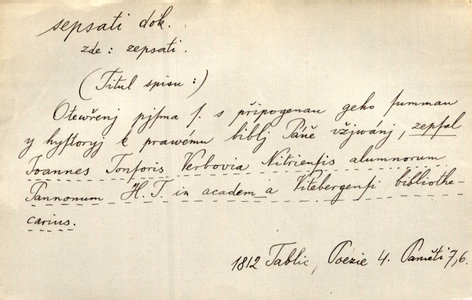 sepsati dok.
zde: zepsati.
(Titul spisu:)
Otewřenj pjsma s. s připogenau geho summau
y hystoryj k prawému biblj Páně vžjwánj, zepsal
Joannes Tonsoris Verbovia Nitriensis alumnorum
Pannonum H. T. in academ_a Vitebergensi bibliothe
carius.
1812 Tablic, Poezie 4. Paměti 7,6.